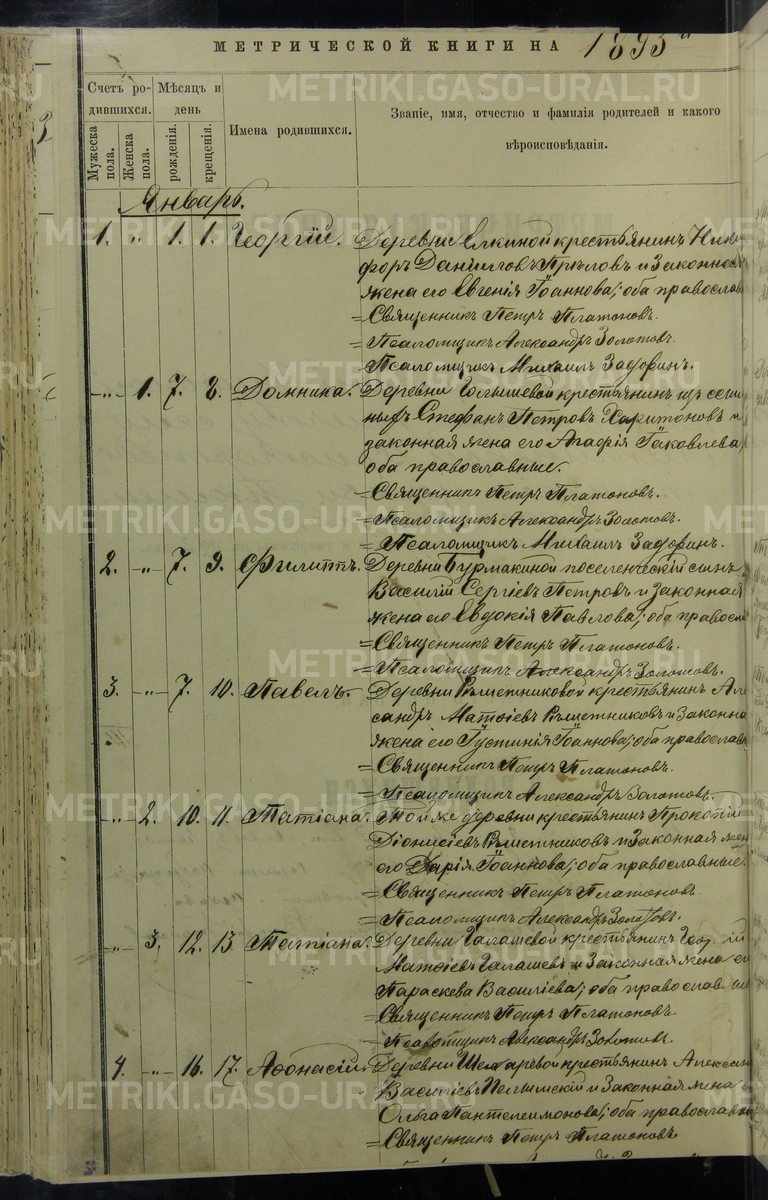 МЕТРИЧЕСКОЙ КНИГИ НА 1893й
Счетъ родившихся.
Мужеска пола.
Женска пола.
Мѣсяцъ и день
рожденія.
крещенія.
Имена родившихся.
Званіе, имя, отчество и фамилія родителей и какого
вѣроисповѣданія.
Январь.
1. " 1. 1. Георгій. Деревни Елкиной крестьянинъ Ники
форъ Данииловъ и законная
жена его Евгенія Іоаннова; оба православ
=Священникъ Петръ Платоновъ.
=Псаломщикъ Александръ Золотовъ.
Псаломщикъ Михаилъ Задоринъ.
-"- 1. 7. 8. Домника. Деревни крестьянинъ изъ ссыль
ныхъ Стефанъ Петровъ Харитоновъ и
законная жена его Агафія Іаковлева,
оба православные.
=Священникъ Петръ Платоновъ.
=Псаломщикъ Александръ Золотовъ.
=Псаломщикъ Михаилъ Задоринъ.
2. -"- 7. 9. Филиппъ. Деревни Бурмакиной поселенческій сынъ
Василій Сергіевъ Петровъ и законная
жена его Евдокія Павлова; оба правосл
=Священникъ Петръ Платоновъ.
=Псаломщикъ Александръ Золотовъ.
3. -"- 7. 10. Павелъ. Деревни Рѣшетниковой крестьянинъ Але
сандръ Матѳіевъ Рѣшетниковъ и законна
жена его Іустинія Іоаннова; оба православ
=Священникъ Петръ Платоновъ.
=Псаломщикъ Александръ Золотовъ.
-"- 2. 10. 11. Татіана. Той же деревни крестьянинъ Прокопій
Діонисіевъ Рѣшетниковъ и законная жен
его Дарія Іоаннова; оба православные.
=Священникъ Петръ Платоновъ
=Псаломщикъ Александръ Золотовъ.
-"- 3. 12. 13. Татіана. Деревни Галашевой крестьянинъ
Матѳіевъ Галашевъ и законная жена е
Параскева Василіева; оба православ
=Священникъ Петръ Платоновъ
=Псаломщикъ Александръ Золотовъ.
4. -"- 16. 17. Аѳонасій. Деревни крестьянинъ Алексан
Василіевъ Пелымскій и законная жена
Ольга Пантелеимонова; оба православн
=Священникъ Петръ Платоновъ
METRIKI.GASO-URAL.RU